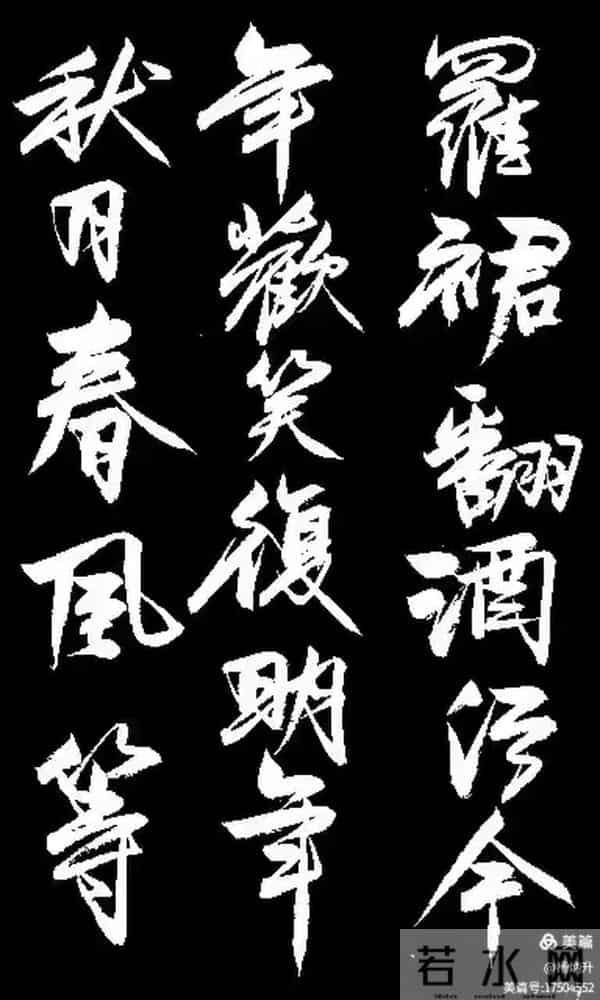 羅裙翻酒污今
年歡笑復明年
秋月春風等
美篇
美篇号:17504552
若水网